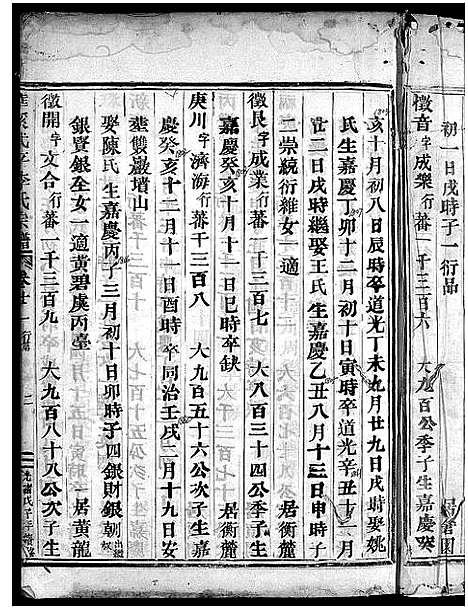 初一日戌時子一衍品
徵音字成樂行蕃一千三百六 大九百公季子生嘉慶癸
亥十月初八日辰時卒道光丁未九月廿九日戌時娶姚
氏生嘉慶丁卯十二月初十日寅時卒道光辛丑十一月
廿二日戌時繼娶王氏生嘉慶乙丑八月十三日申時子
二崇統衍維女一適 居衡麓
徵長字成業行蕃一千三百七 大八百三十四公季子生
嘉慶癸亥十月十一日巳時卒缺 居衡麓
庚川字濟海行蕃千三百八 大九百五十六公次子生嘉
慶癸亥十二月十一日酉時卒同治壬戌二月十九日女
塟雙巖墳山
娶陳氏生嘉慶丙子三月初十日卯時子四銀財銀朝出繼
銀寶銀全女一適黃碧虞丙壺 一居黃龍
徵開字文合行蕃一千三百九 大九百八十八公次子生
李氏宗譜 卷廿一 二